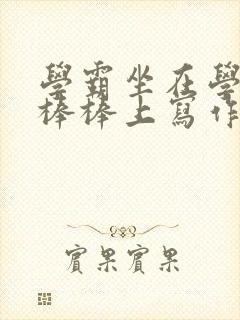 學霸坐在學
棒棒上寫作
賓果賓果